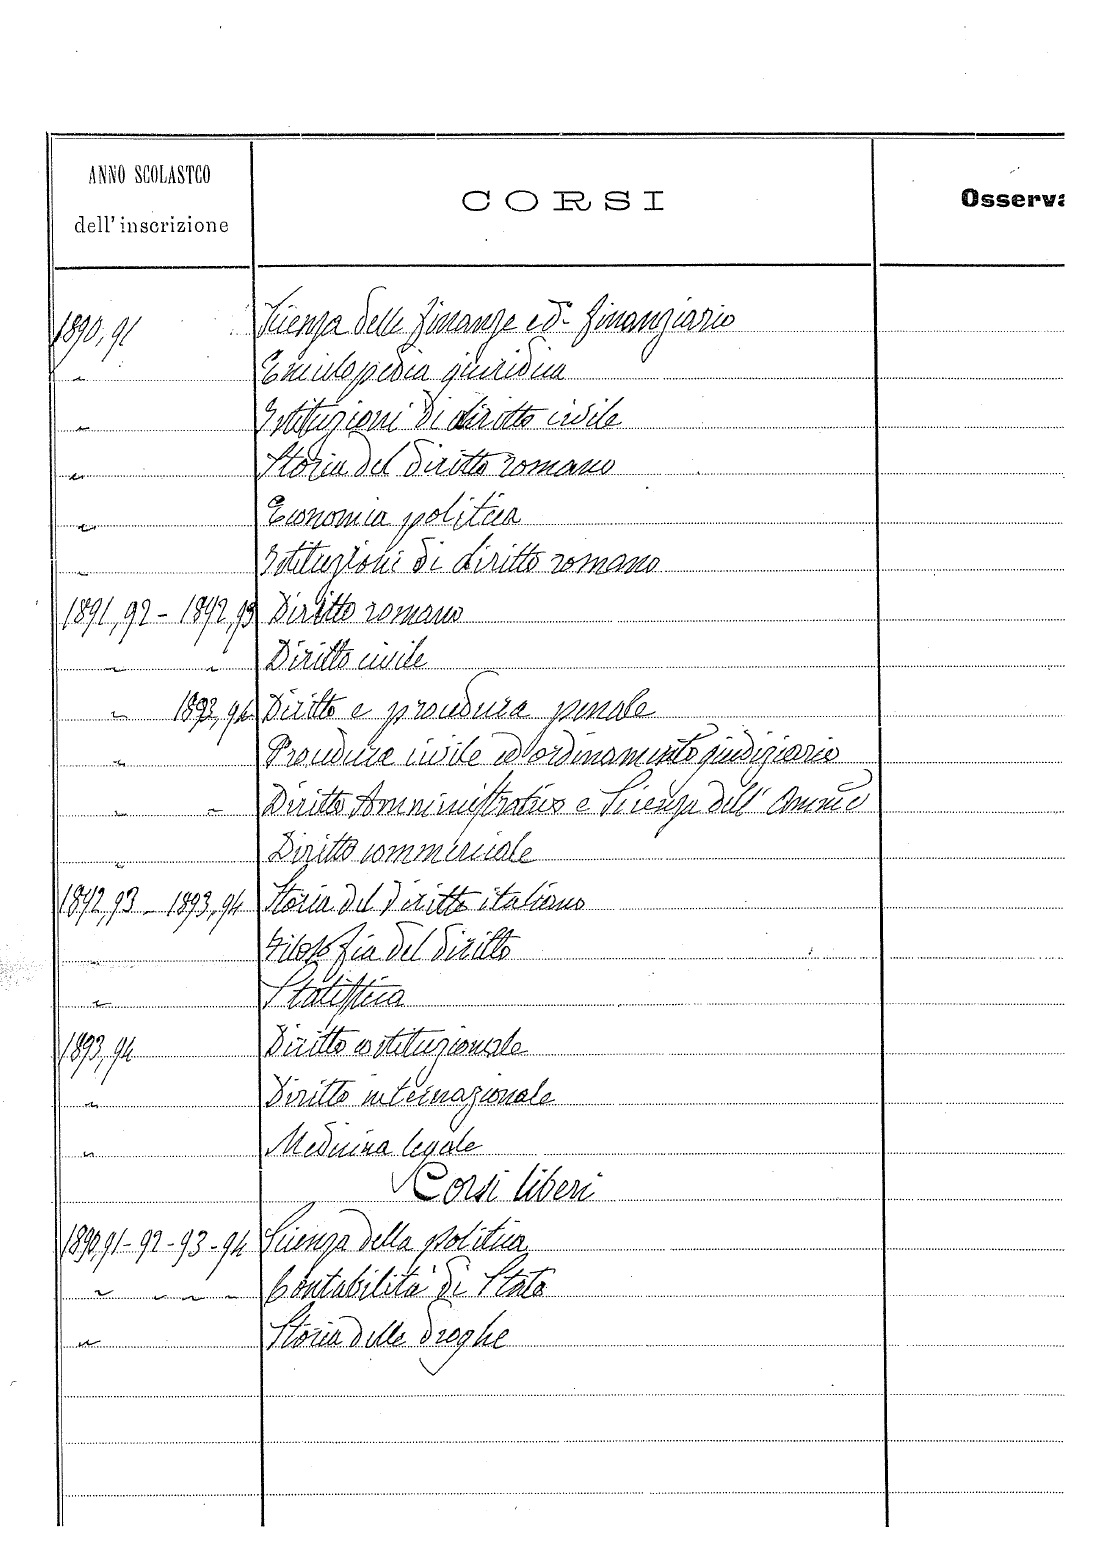 ANNO SCOLASTCO
dell' inscrizione
CORSI
Osserva
1890,91 Scienza delle finanze ed finanziario
" Enciclopedia giuridica
" Istituzioni di diritto civile
" Storia del diritto romano
" Economia politica
" Istituzioni di diritto romano
1891,92 - 1892,93 Diritto romano
" " Diritto civile
" 1893,94 Diritto e procedura penale
" Procedura civile ed ordinamento giudiziario
" " Diritto Amministrativo e Scienza dell' Amm.e
" Diritto commerciale
1892,93 - 1893,94 Storia del diritto italiano
" Filosofia del diritto
" Statistica
1893,94 Diritto costituzionale
" Diritto internazionale
" Medicina legale
Corsi liberi
1890,91-92-93-94 Scienza della politica
" " " " Contabilità di Stato
" Storia delle droghe